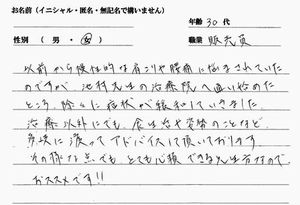 お名前（イニシャル・匿名・無記名で構いません）
年齢 30 代
性別（ 男 ・ 女 ） 職業 販売員
以前から慢性的な肩こりや腰痛に悩まされていた
のですが、池科先生の治療院へ通い始めた
ところ、除々に症状が緩和していきました
治療以外にでも、食生活や姿勢のことなど、
多岐に渡ってアドバイスして頂いております
その様な点でも、とても心頼できる先生方なので、
おススメです!!